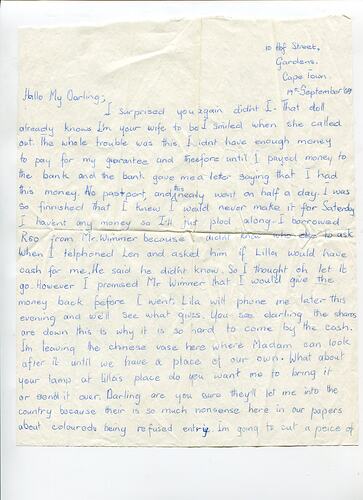 10 Hof Street,
Gardens.
Cape Town.
19th September '69
Hallo My Darling;
I surprised you again didnt I. That doll
already knows I'm your wife to be I smiled when she called
out. The whole trouble was this. I didnt have enough money
to pay for my guarantee and therefore until I payed money to
the bank and the bank gave me a letter saying that I had
this money. No passport and this nearly went on half a day I was
so finnished that I knew I would never make it for Saterday
I havent any money so I'll just plod along. I borrowed
R60 from Mr. Wimmer because I didnt know who else to ask
When I telphoned Len and asked him if Lilla would have
cash for me. He said he didnt know. So I thought oh let it
go. However I promised Mr Wimner that I would give the
money back before I went. Lila will phone me later this
evening and we'll see what gives. You see darling the shares
are down this is why it is so hard to come by the cash.
I'm leaving the chinese vase here where Madam can look
after it until we have a place of our own. What about
your lamp at Lilla's place do you want me to bring it
or send it over. Darling are you sure they'll let me into the
country because their is so much nonsense here in our papers
about coloureds being refused entry. I'm going to cut a peice of